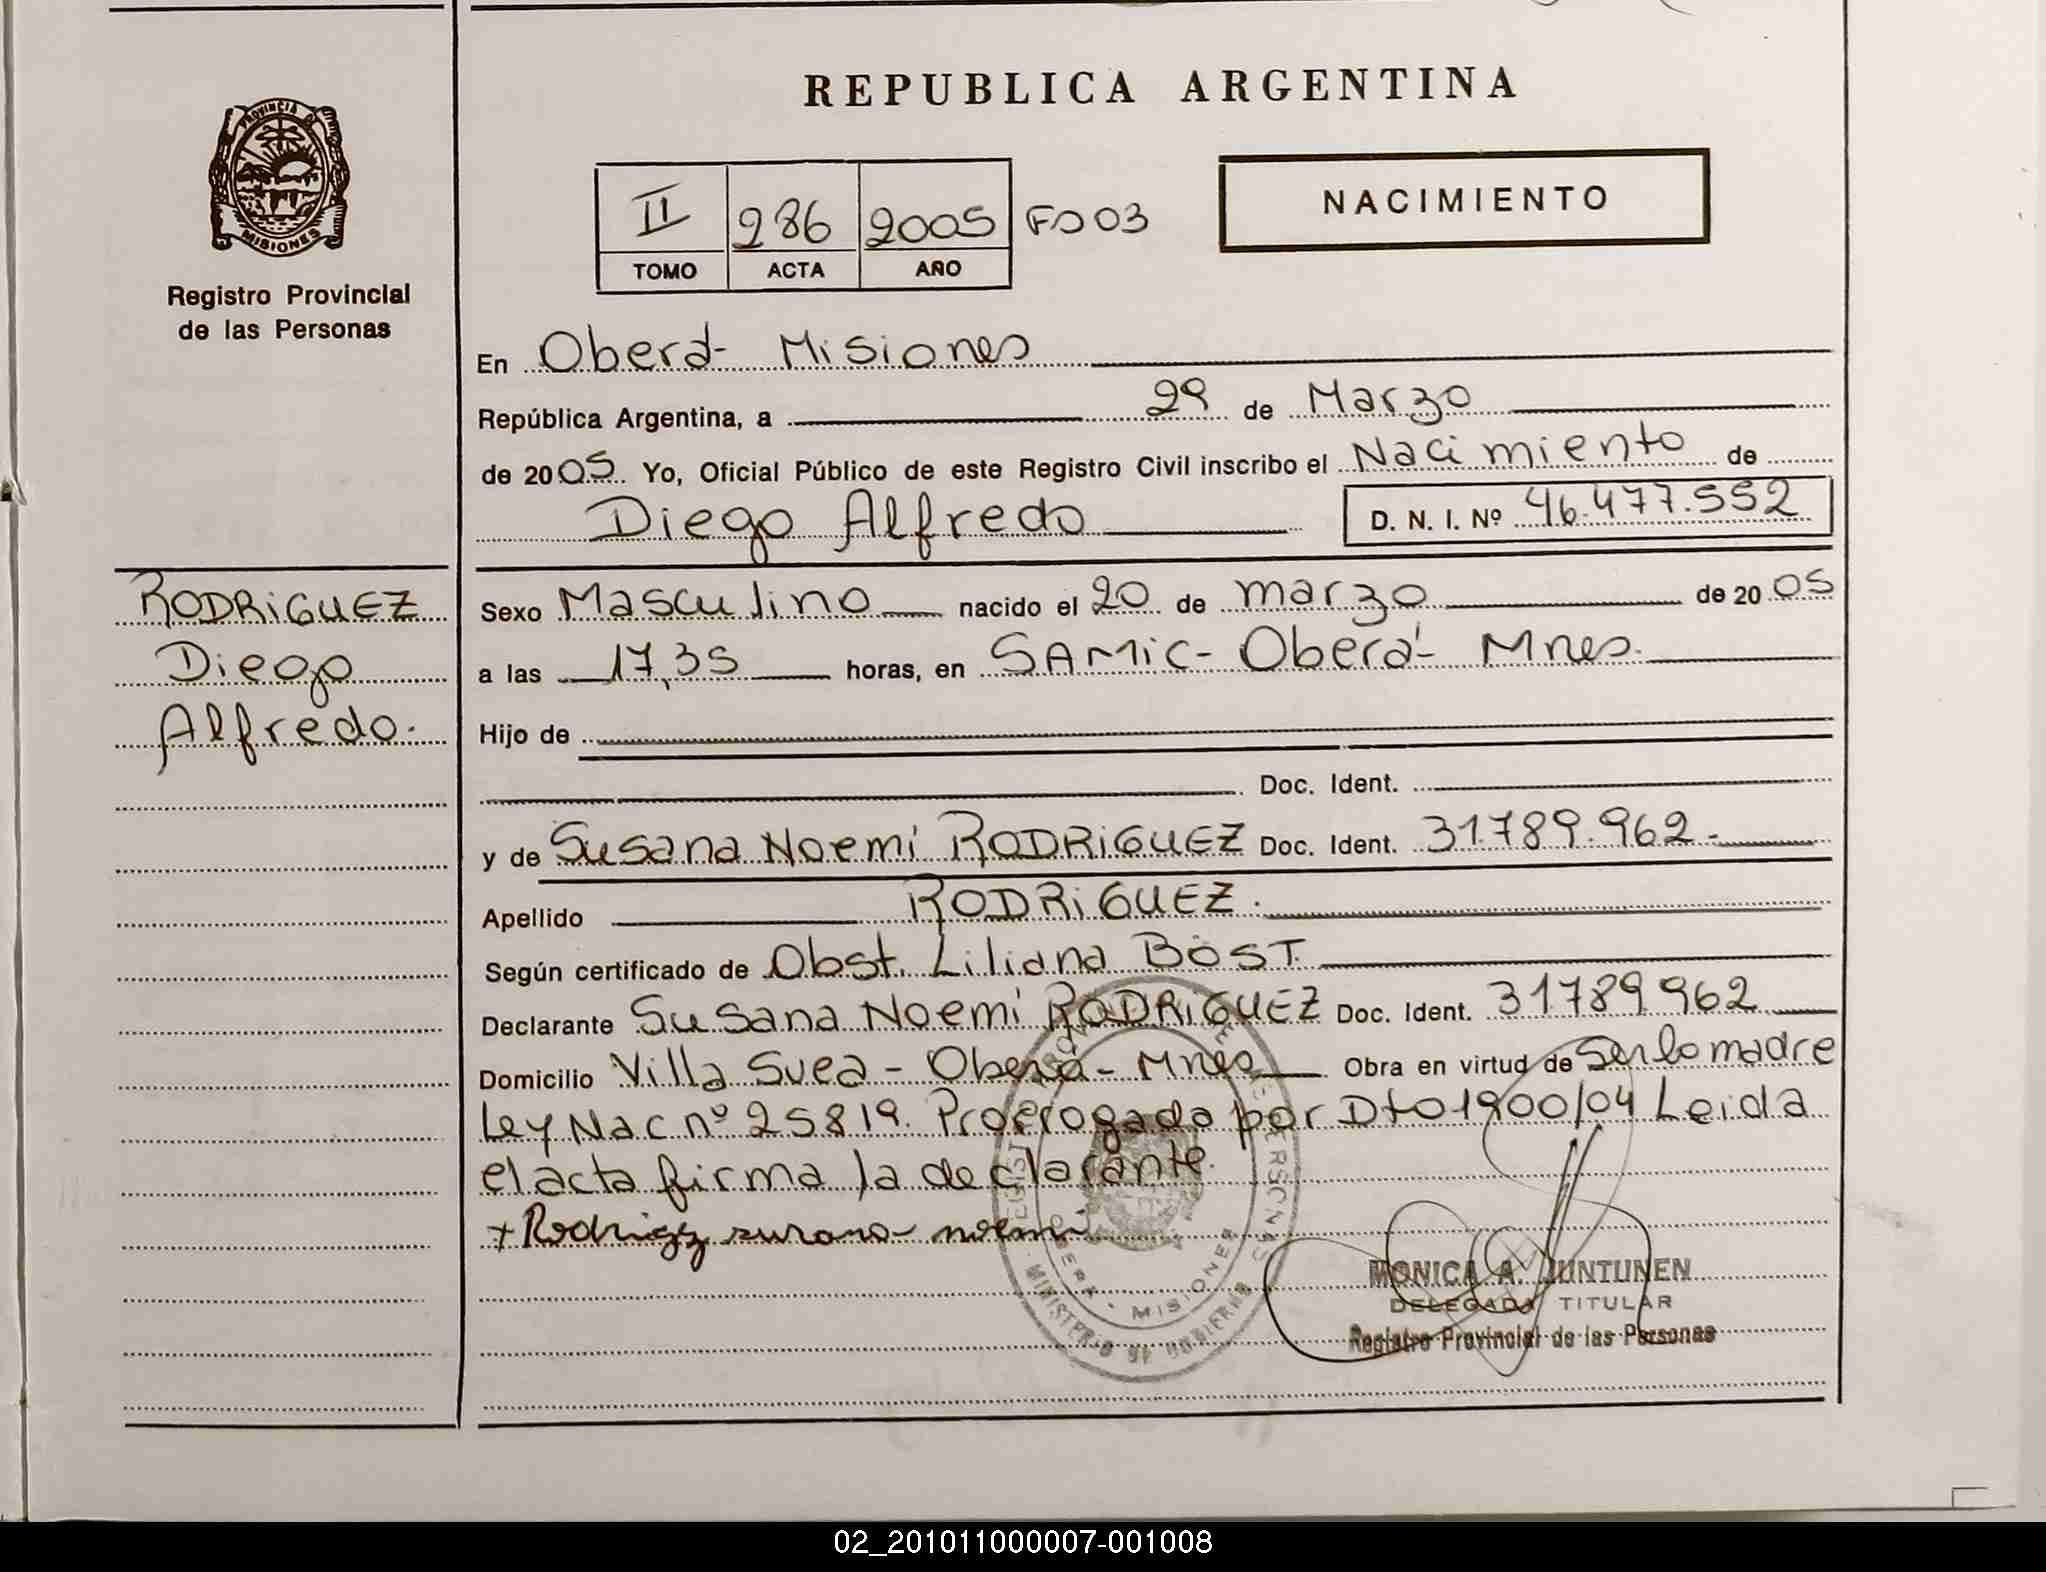 REPUBLICA ARGENTINA
PROVINCIA DE
MISIONES
Registro Provincial
de las Personas
II 286 2005 Fº 03
TOMO ACTA AÑO
NACIMIENTO
En Oberá- Misiones
República Argentina, a 29 de Marzo
de 2005 Yo, Oficial Público de este Registro Civil inscribo el Nacimiento de
Diego Alfredo D. N. I. Nº 46.477.552
RODRIGUEZ
Diego
Alfredo.
Sexo Masculino nacido el 20 de marzo de 2005
a las 17,35 horas, en SAMIC- Oberá- Mnes.
Hijo de
Doc. Ident.
y de Susana Noemí RODRIGUEZ Doc. Ident. 31.789.962.-
Apellido RODRIGUEZ.
Según certificado de Obst. Liliana BOST.
Declarante Susana Noemí RODRIGUEZ Doc. Ident. 31789962
Domicilio Villa Svea - Oberá - Mnes Obra en virtud de Ser la madre
Ley Nac nº 25819. Prorrogado por Dto 1900/04 Leida
el acta firma la declarante.
+ Rodriguz susana noemi
MISIONES
MINISTERIO DE GOBIERNO
MONICA A. JUNTUNEN
DELEGADA TITULAR
Registro Provincial de las Personas
02_201011000007-001008